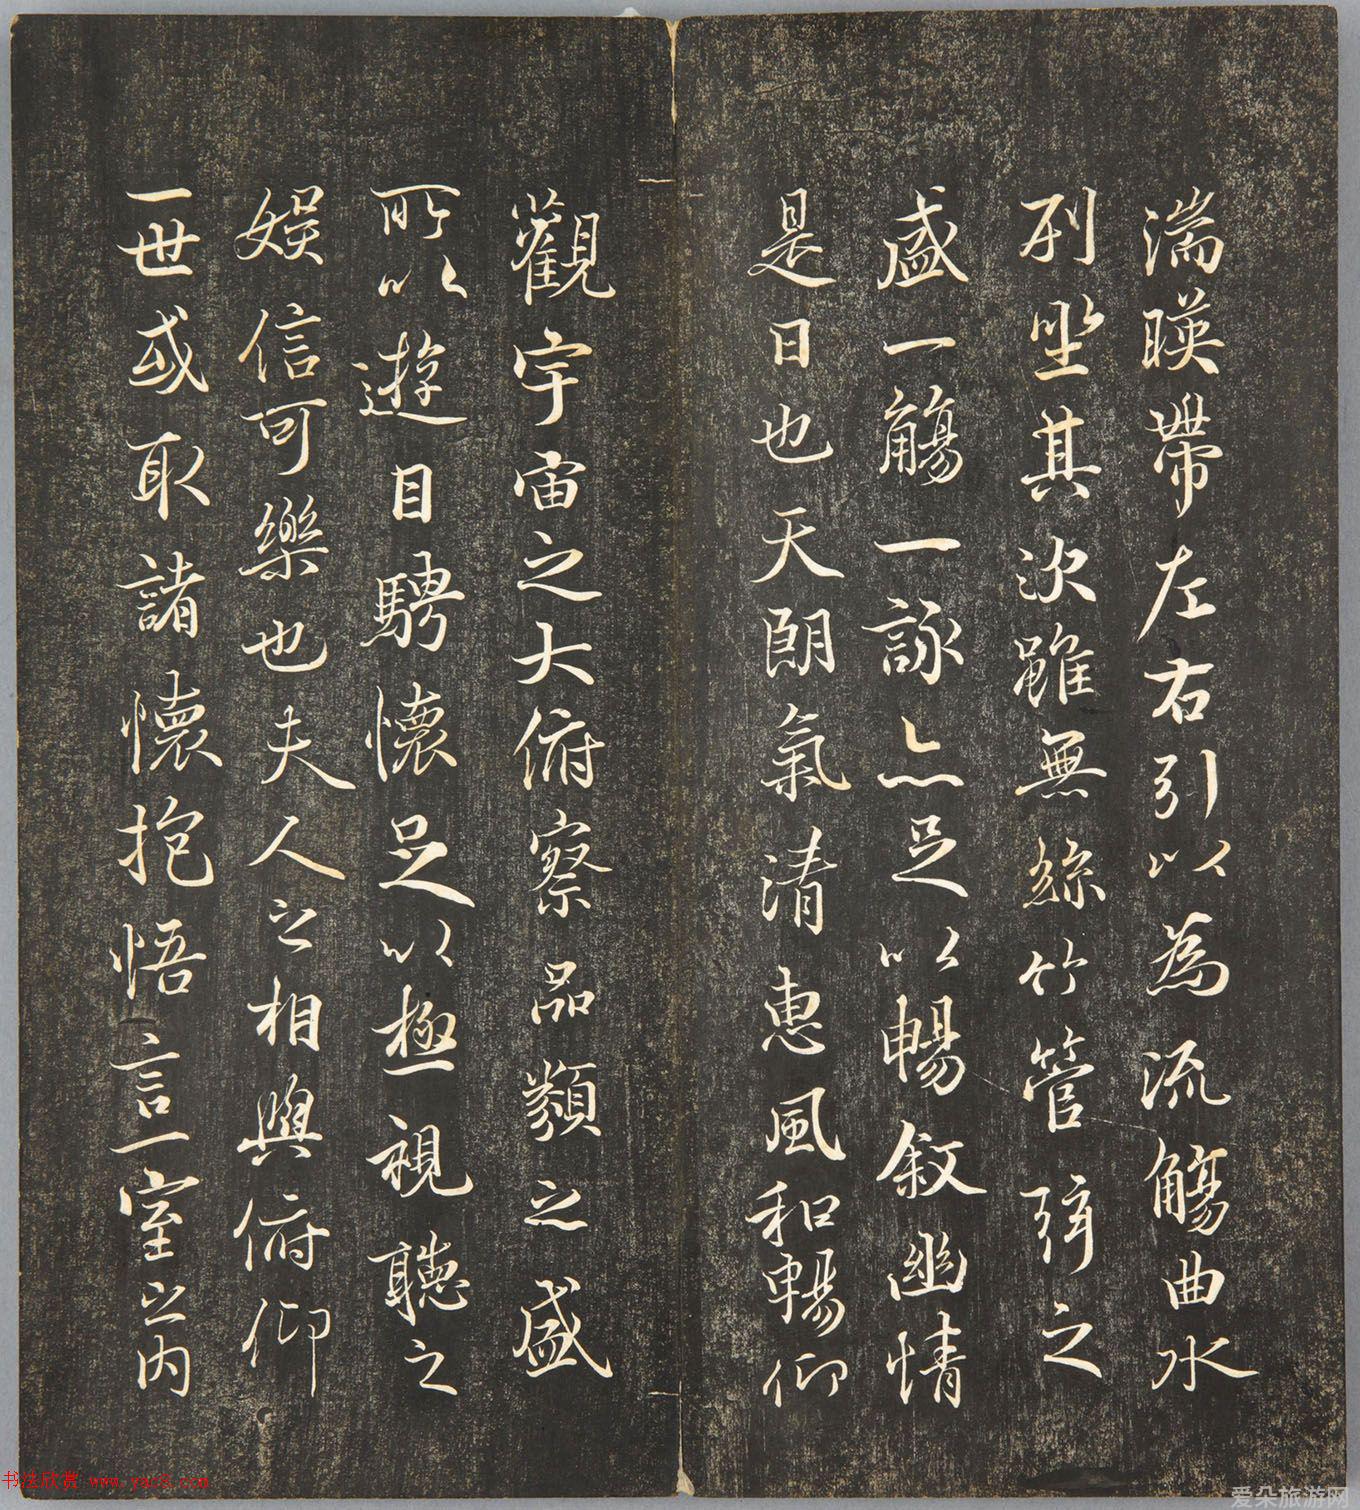 湍暎帶左右引以為流觴曲水
列坐其次雖無絲竹管弦之
盛一觴一詠亦足以暢敘幽情
是日也天朗氣清惠風和暢仰
觀宇宙之大俯察品類之盛
所以遊目騁懷足以極視聽之
娛信可樂也夫人之相與俯仰
一世或取諸懷抱悟言一室之内
书法欣赏 www.yac8.com
爱朵旅游网